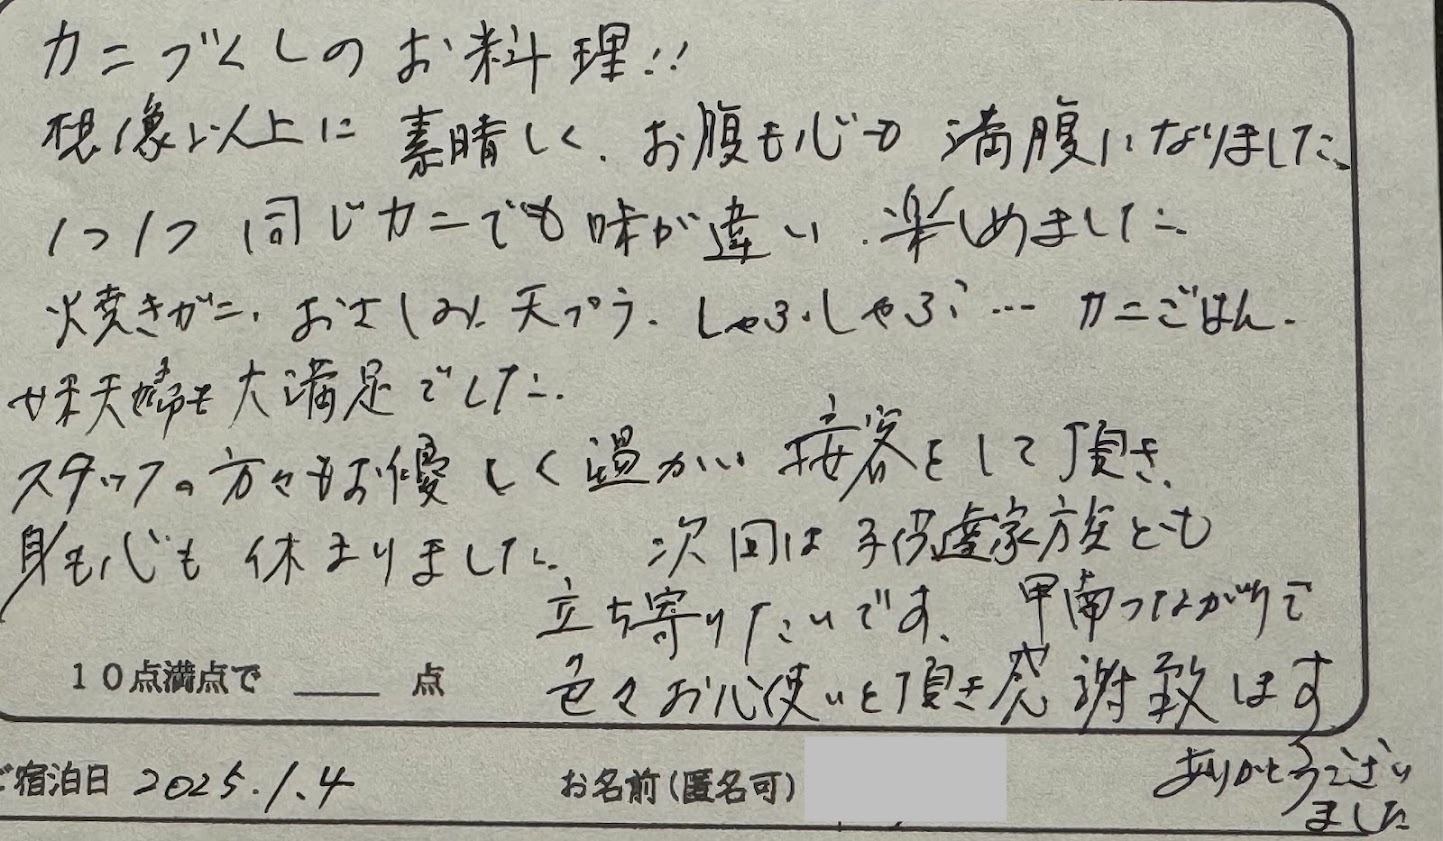 カニづくしのお料理!!
想像以上に素晴しく、お腹も心も満腹になりました。
1つ1つ同じカニでも味が違い、楽しめました。
焼きガニ、おさしみ、天プラ、しゃぶしゃぶ… カニごはん。
妹夫婦も大満足でした。
スタッフの方々もお優しく温かい接客をして頂き、
身も心も休まりました。 次回は子供達家族とも
立ち寄りたいです。 甲南つながりで
10点満点で ___ 点 色々お心使いを頂き感謝致します
ご宿泊日 2025.1.4 お名前(匿名可) ありがとうござい
ました